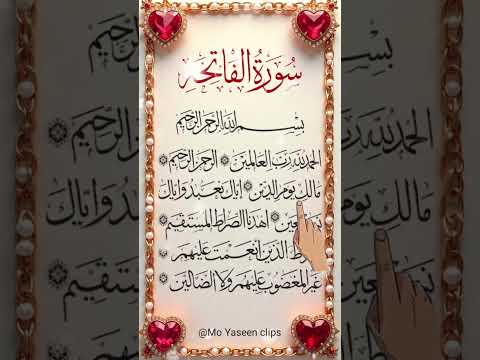 سُورَةُ الْفَاتِحَةِ
بِسْمِ اللهِ الرَّحْمٰنِ الرَّحِيْمِ
الْحَمْدُ لِلّٰهِ رَبِّ الْعَالَمِيْنَ ۞ الرَّحْمٰنِ الرَّحِيْمِ ۞
مَالِكِ يَوْمِ الدِّيْنِ ۞ إِيَّاكَ نَعْبُدُ وَإِيَّاكَ
۞ اهْدِنَا الصِّرَاطَ الْمُسْتَقِيْمَ ۞
الَّذِيْنَ أَنْعَمْتَ عَلَيْهِمْ
غَيْرِ الْمَغْضُوْبِ عَلَيْهِمْ وَلَا الضَّالِّيْنَ ۞
@Mo Yaseen clips